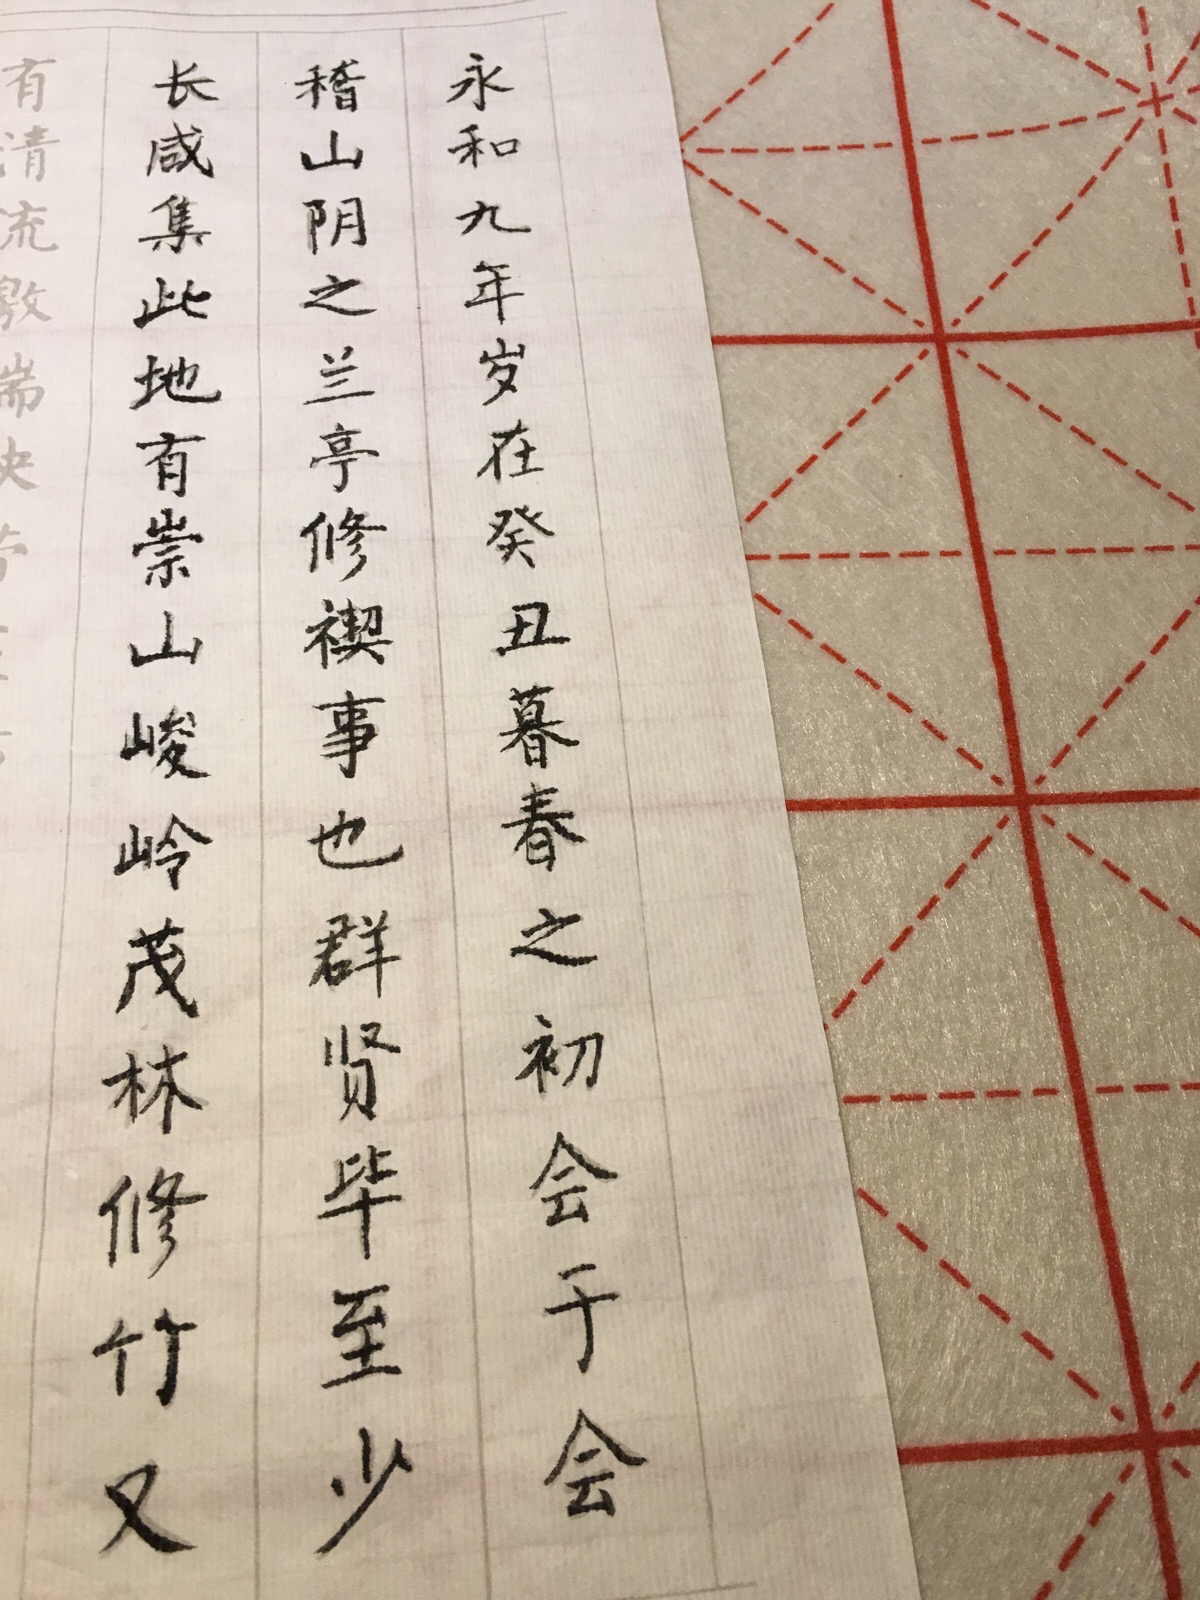 永和九年岁在癸丑暮春之初会于会
稽山阴之兰亭修禊事也群贤毕至少
长咸集此地有崇山峻岭茂林修竹又
有清流激湍映